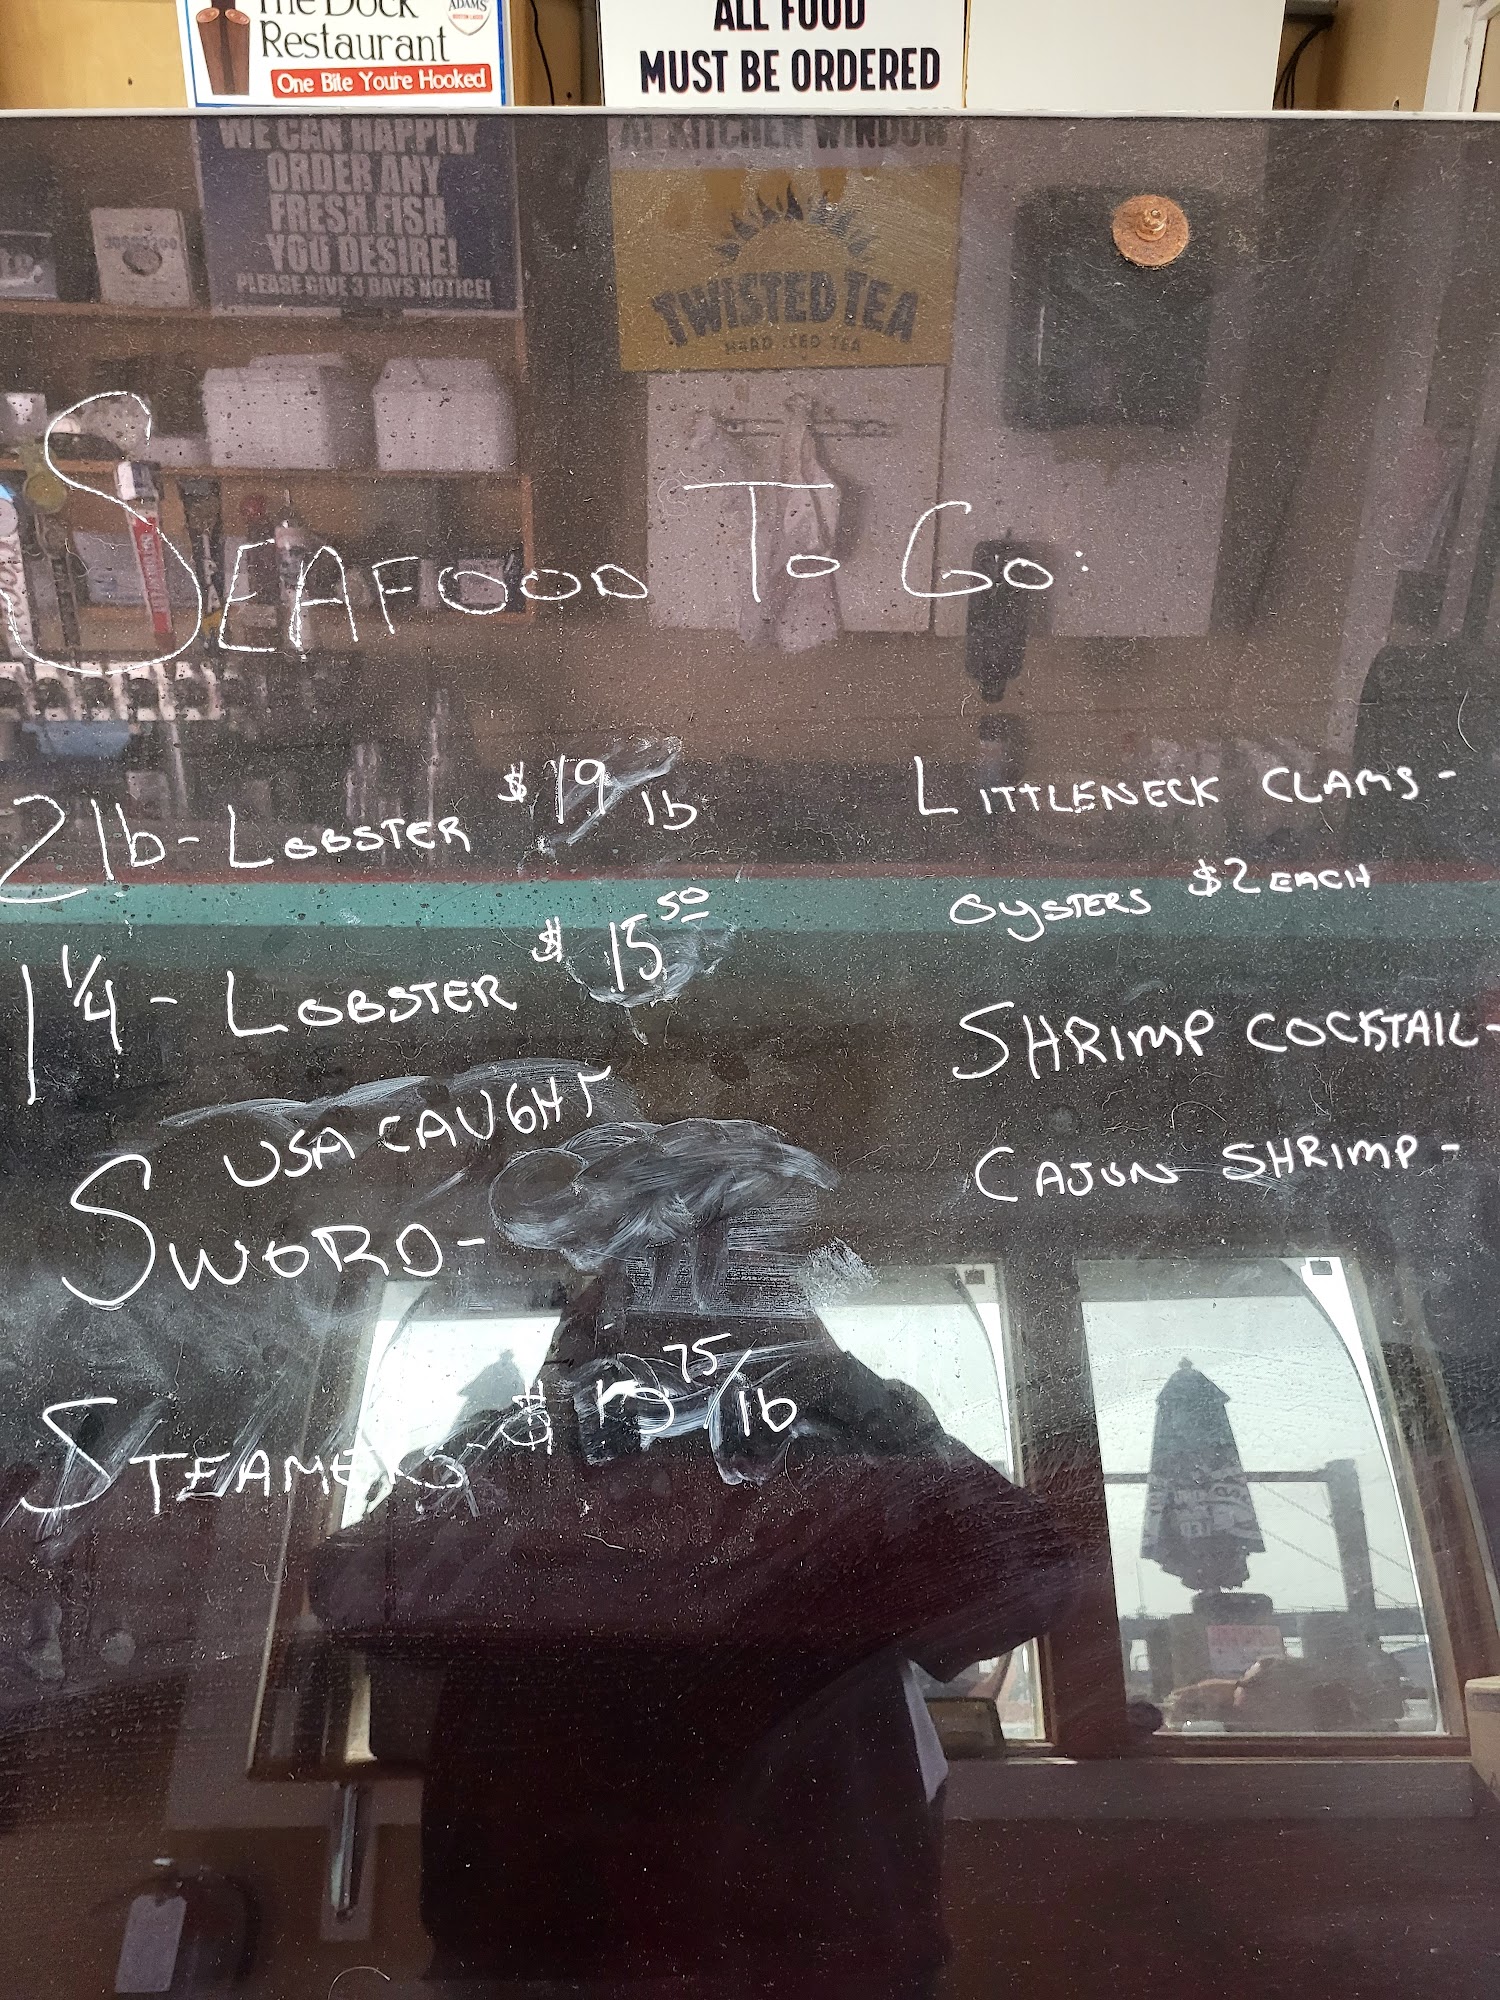 The Dock
Restaurant
One Bite You're Hooked
ADAMS
ALL FOOD
MUST BE ORDERED
AT KITCHEN WINDOW
WE CAN HAPPILY
ORDER ANY
FRESH FISH
YOU DESIRE!
PLEASE GIVE 3 DAYS NOTICE!
TWISTED TEA
HARD ICED TEA
SEAFOOD TO GO:
2 lb - LOBSTER $19 lb
1 1/4 - LOBSTER $15 50
USA CAUGHT
SWORD -
STEAMERS - $ 75/lb
LITTLENECK CLAMS -
OYSTERS $2 EACH
SHRIMP COCKTAIL -
CAJUN SHRIMP -